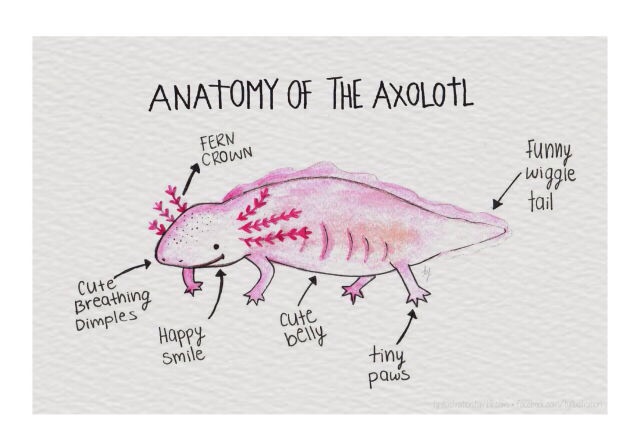 ANATOMY OF THE AXOLOTL
FERN
CROWN
Funny
wiggle
tail
Cute
Breathing
Dimples
Happy
smile
cute
belly
tiny
paws